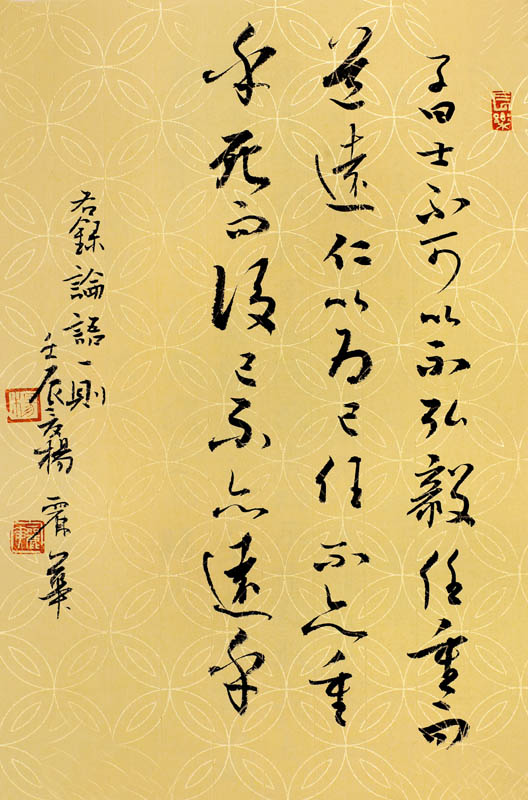 長樂
子曰士不可以不弘毅任重而
道遠仁以為己任不亦重
乎死而後已不亦遠乎
右錄論語一則
壬辰楊華
楊